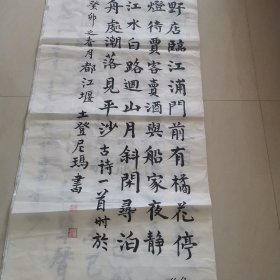 野店臨江浦門前有橘花停
燈待賈客賣酒與船家夜靜
江水白路迴山月斜閑尋泊
舟處潮落見平沙古詩一首时於
癸卯之春月都江堰土登尼瑪書